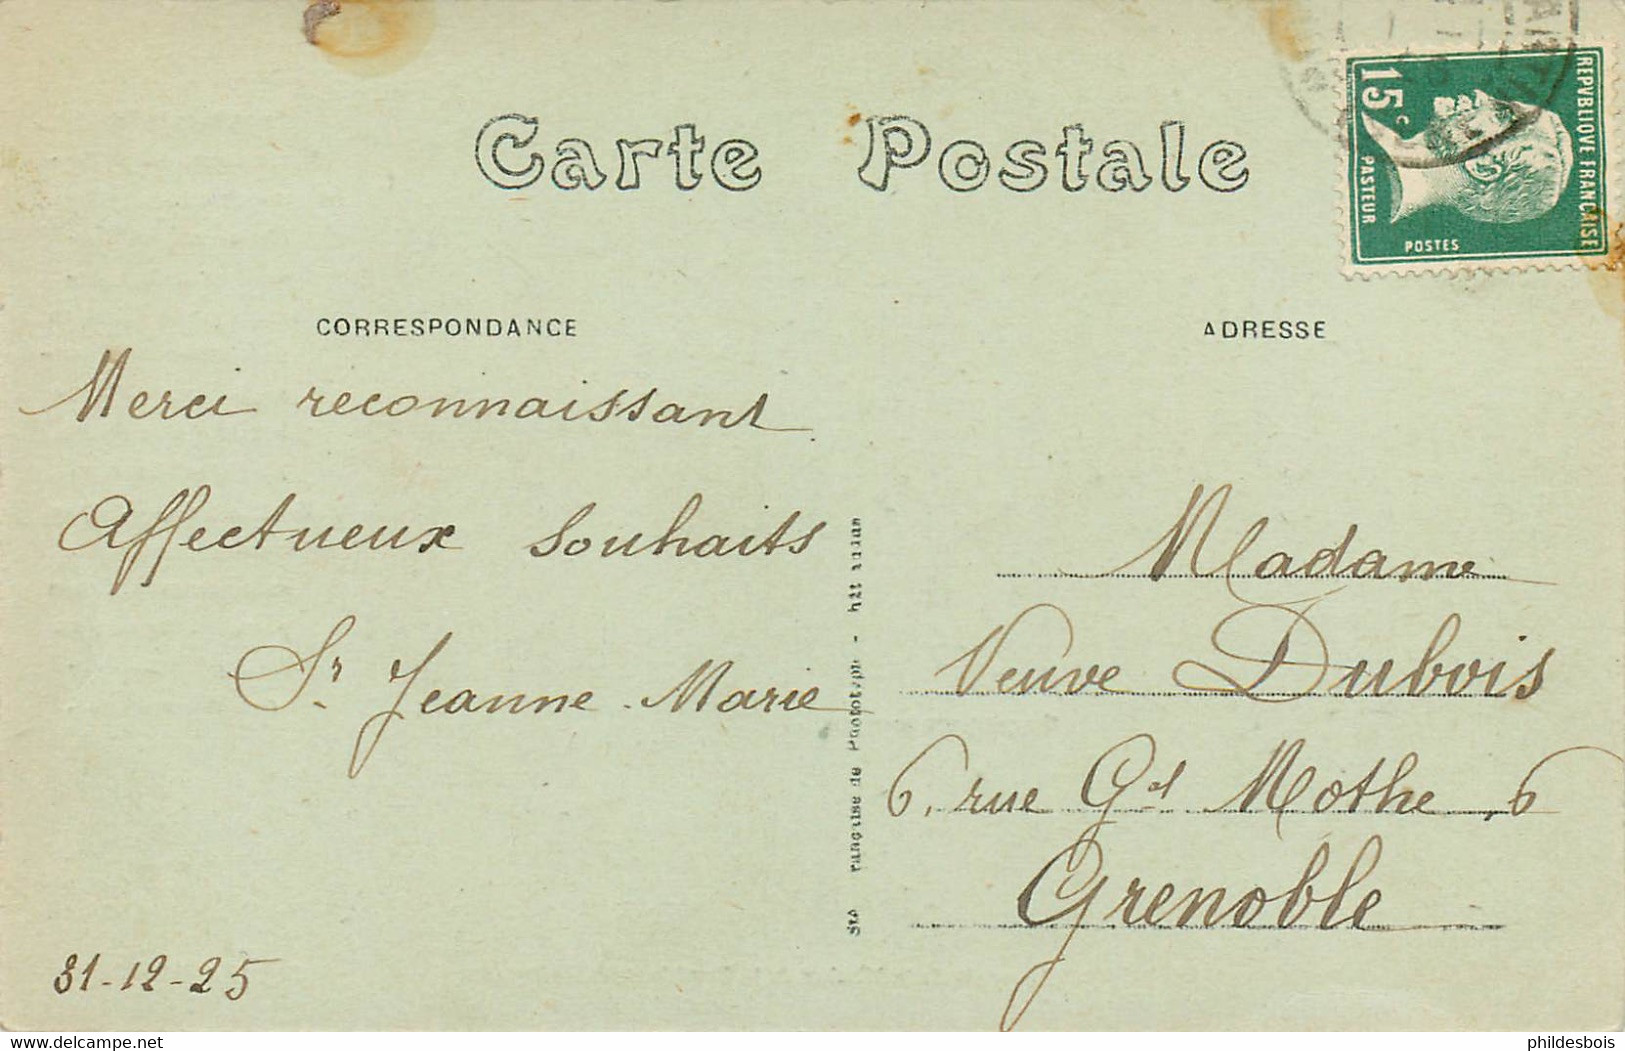 Carte Postale
REPVBLIQVE FRANCAISE
15 c
PASTEUR
POSTES
CORRESPONDANCE
ADRESSE
Merci reconnaissant
Affectueux souhaits
Sr Jeanne-Marie
31-12-25
Madame
Veuve Dubois
6, rue Gal Mothe, 6
Grenoble
delcampe.net
phildesbois